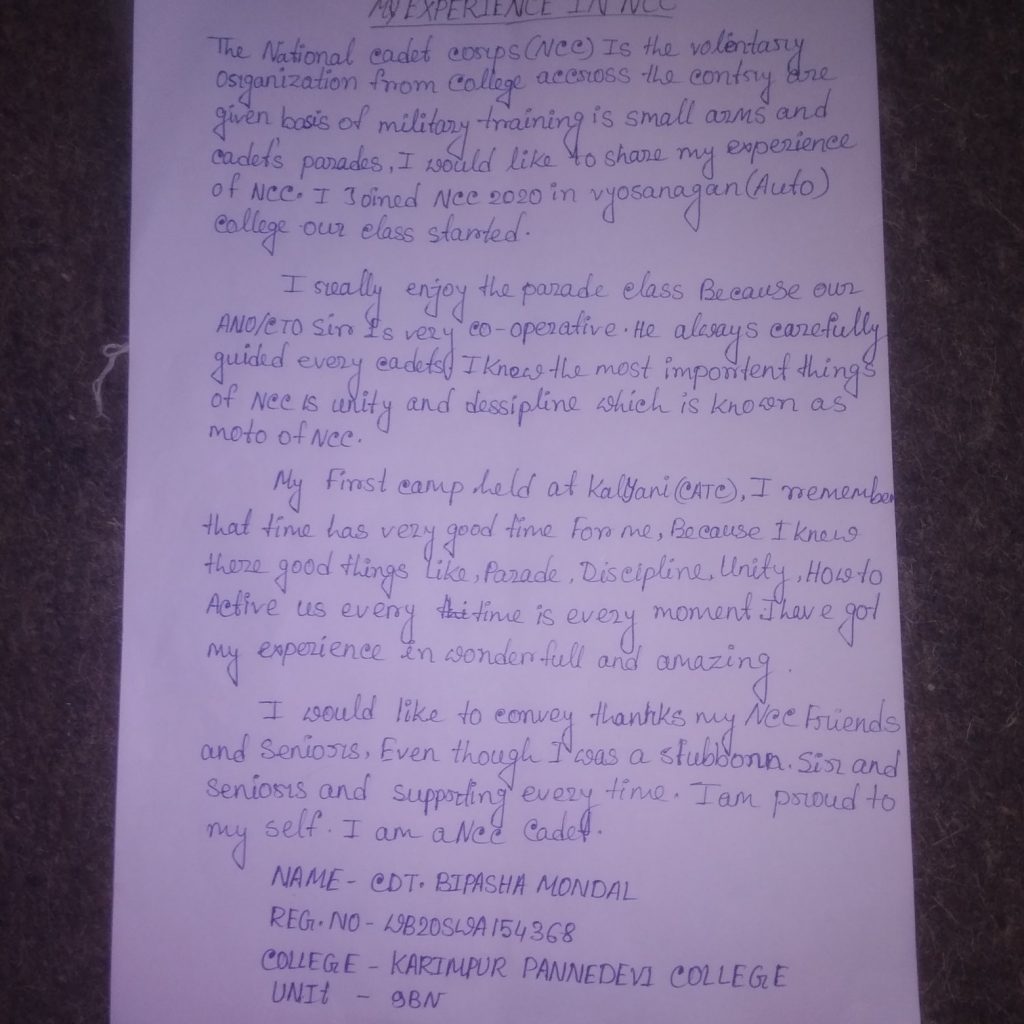 MY EXPERIENCE IN NCC
The National cadet corps (NCC) Is the volentary
organization from College accross the contry are
given basis of military training is small arms and
cadets parades, I would like to share my experience
of NCC. I Joined NCC 2020 in vyosanagan (Auto)
College our class started.
I really enjoy the parade class Because our
ANO/CTO Sir Is very co-operative. He always carefully
guided every cadets, I Know the most importent things
of NCC is unity and dessipline which is known as
moto of NCC.
My First camp held at Kalyani (CATC), I rremember
that time has very good time For me, Because I know
there good things like, Parade, Discipline, Unity, How to
Active us every time is every moment. I have got
my experience in wonderfull and amazing.
I would like to convey thanhks my NCC Friends
and Seniors, Even though I was a stubborn. Sir and
Seniors and supporting every time. I am proud to
my self. I am a NCC Cadet.
NAME - CDT. BIPASHA MONDAL
REG. NO - WB20SWA154368
COLLEGE - KARIMPUR PANNEDEVI COLLEGE
UNIt - 9BN